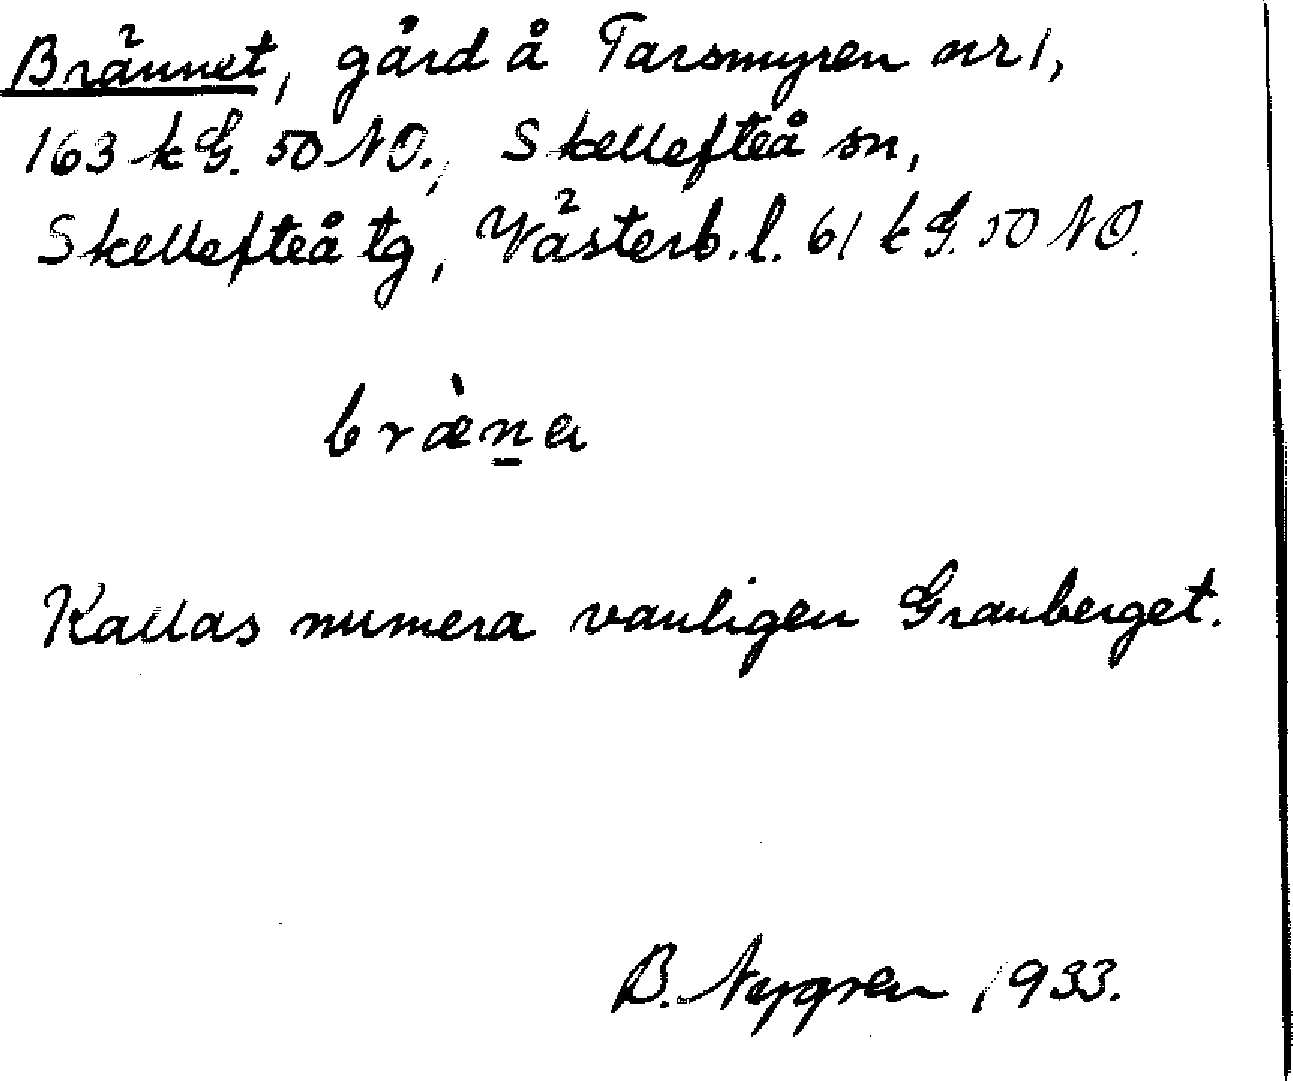 Brännet, gård å Tarsmyren nr 1,
163 k G. 50 NO., Skellefteå sn,
Skellefteå tg, Västerb. l. 61 k G. 50 NO.
bræ̀n̲a
Kallas numera vanligen Granberget.
B. Nygren 1933.